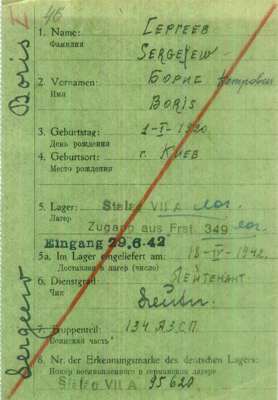 46
1. Name: Сергеев
Фамилия
Sergejew
2. Vornamen: Борис Петрович
Имя
Boris
3. Geburtstag: 1-I-1920
День рождения
4. Geburtsort: г. Киев
Место рождения
5. Lager: Stalag VII A лаг.
Лагерь
Zugang aus Frst. 349 лаг.
Eingang 29.6.42
5a. Im Lager eingeliefert am: 18-IV-1942.
Доставлен в лагерь (число)
6. Dienstgrad: Лейтенант
Чин
Leutn.
7. Truppenteil: 134 А.З.С.П.
Воинская часть
8. Nr. der Erkennungsmarke des deutschen Lagers:
Номер военнопленного в германском лагере
Stalag VII A 95620
Sergeew Boris